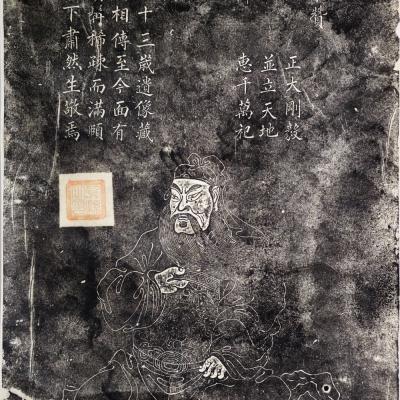 贊
正大剛毅
並立天地
惠千萬祀
十三歲遺像藏
相傳至今面有
稀疎而滿頤
下肅然生敬焉